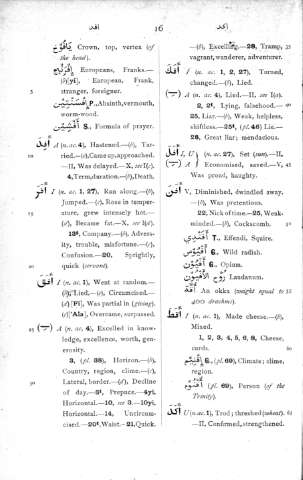 افد
16
اكد
يَافُوخ Crown, top, vertex (of
the head).
إِفْرَنْج Europeans, Franks.—
(b)yī), European, Frank,
stranger, foreigner.
أَفْسَنْتِين P., Absinth, vermouth,
worm-wood.
S., Formula of prayer.
أَفِدَ A (n. ac. 4), Hastened.—(b), Tar-
ried.—(c), Came up, approached.
—II, Was delayed.—X, as I(c).
4, Term, duration.—(b), Death.
أَفَرَ I (n. ac. 1, 27), Ran along.—(b),
Jumped.—(c), Rose in temper-
ature, grew intensely hot.—
(e), Became fat.—X, as I(c).
13ᵗ, Company.—(b), Advers-
ity, trouble, misfortune.—(c),
Confusion.—20, Sprightly,
quick (servant).
أَفَقَ I (n. ac. 1), Went at random.—
(b), Lied.—(c), Circumcised.—
(d) [Fī], Was partial in (giving).
(e) ['Ala], Overcame, surpassed.
(—) A (n. ac. 4), Excelled in know-
ledge, excellence, worth, gen-
erosity.
3, (pl. 38), Horizon.—(b),
Country, region, clime.—(c),
Lateral, border.—(d), Decline
of day.—3ᵗ, Prepuce.—4yī,
Horizontal.—10, or 3.—10yī,
Horizontal.—14, Uncircum-
cised.—20ᵗ, Waist.—21, Quick.
—(b), Excelling.—28, Tramp,
vagrant, wanderer, adventurer.
أَفَكَ I (n. ac. 1, 2, 27), Turned,
changed.—(b), Lied.
(—) A (n. ac. 4), Lied.—II, as I(a).
2, 2ᵗ, Lying, falsehood.—
25, Liar.—(b), Weak, helpless,
shiftless.—25ᵗ, (pl. 46) Lie.—
26, Great liar; mendacious.
أَفَلَ I, U (n. ac. 27), Set (sun).—II,
A Economised, saved.—V,
Was proud, haughty.
أَفَنَ V, Diminished, dwindled away.
—(b), Was pretentious.
22, Nick of time.—25, Weak-
minded.—(b), Cockscomb.
أَفَنْدِي T., Effendi, Squire.
G., Wild radish.
أَفْيُون G., Opium.
رُوح الأَفْيُون Laudanum.
An okka (weight equal to
400 drachms).
أَقَطَ I (n. ac. 1), Made cheese.—(b),
Mixed.
1, 2, 3, 4, 5, 6, 8, Cheese,
curds.
إِقْلِيم G., (pl. 69), Climate; clime,
region.
أُقْنُوم (pl. 69), Person (of the
Trinity).
أَكَدَ U (n. ac. 1), Trod; threshed (wheat).
—II, Confirmed, strengthened.